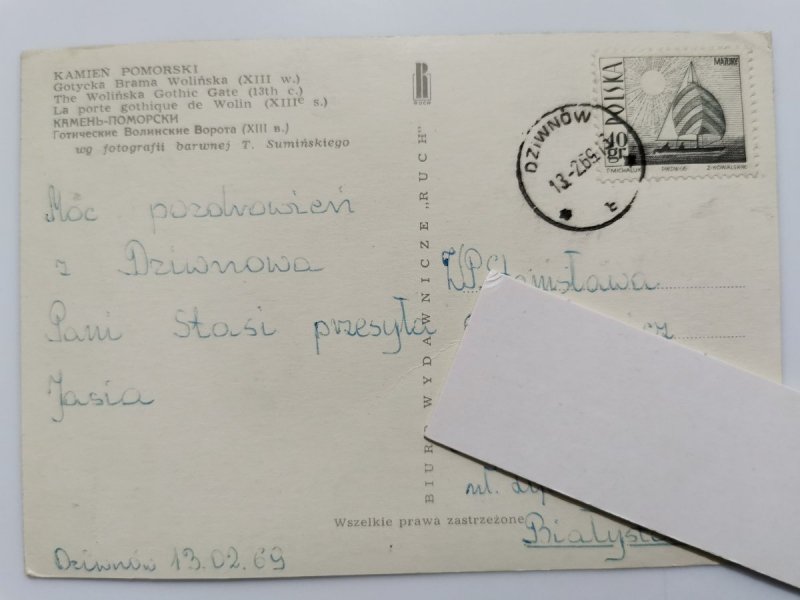 KAMIEŃ POMORSKI
Gotycka Brama Wolińska (XIII w.)
The Wolińska Gothic Gate (13th c.)
La porte gothique de Wolin (XIIIe s.)
КАМЕНЬ-ПОМОРСКИ
Готические Волинские Ворота (XIII в.)
wg fotografii barwnej T. Sumińskiego
Móc pozdrowień
z Dziwnowa
Pani Stasi przesyła
Jasia
Dziwnów 13.02.69
RUCH
BIURO WYDAWNICZE „RUCH"
Wszelkie prawa zastrzeżone
POLSKA
MAZURY
40 gr
T.MICHALUK
PWPW
Z.KOWALSKI
DZIWNÓW
13.-2.69
W.P. Stanisława
ul.